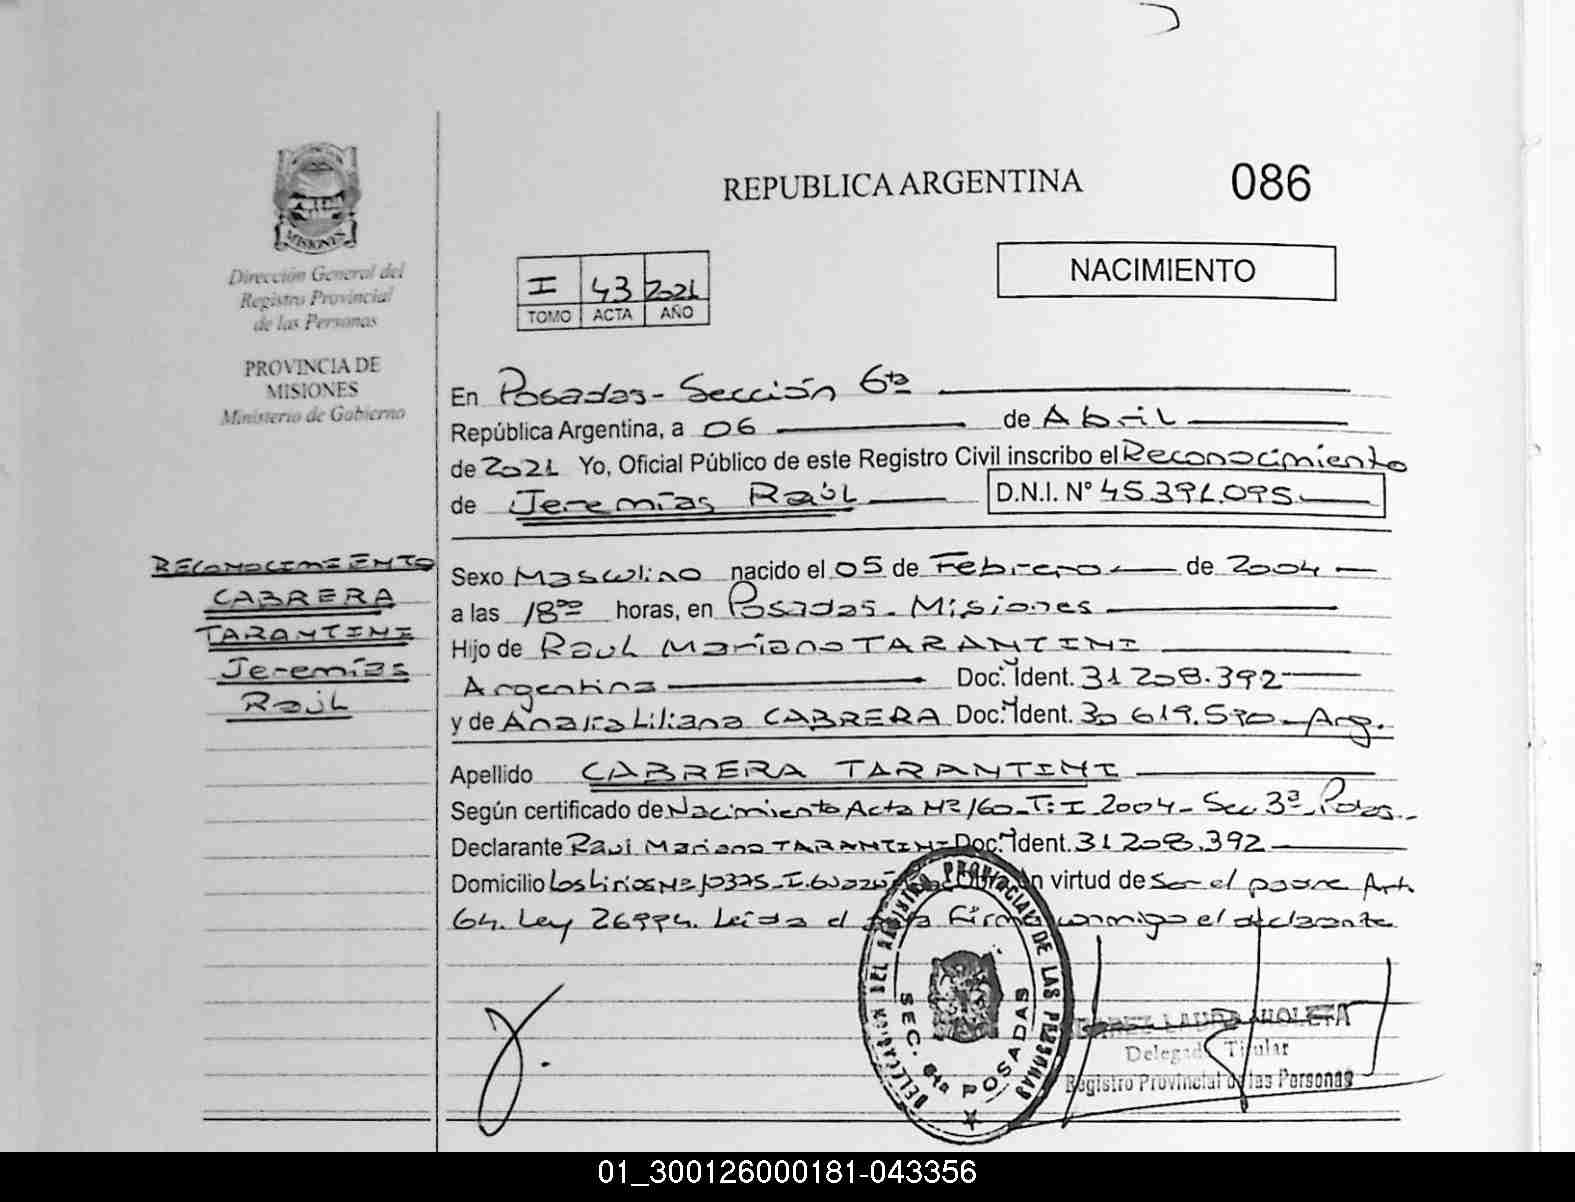 REPUBLICA ARGENTINA
086
MISIONES
Dirección General del
Registro Provincial
de las Personas
PROVINCIA DE
MISIONES
Ministerio de Gobierno
I 43 2021
TOMO ACTA AÑO
NACIMIENTO
En Posadas - Sección 6ta
República Argentina, a 06 de Abril
de 2021 Yo, Oficial Público de este Registro Civil inscribo el Reconocimiento
de Jeremías Raúl D.N.I. Nº 45.391.095
RECONOCIMIENTO
CABRERA
TARANTINI
Jeremías
Raúl
Sexo Masculino nacido el 05 de Febrero de 2004
a las 18:00 horas, en Posadas - Misiones
Hijo de Raul Mariano TARANTINI
Argentina Doc. Ident. 31 208.392
y de Analia Liliana CABRERA Doc. Ident. 30 619.590 - Arg.
Apellido CABRERA TARANTINI
Según certificado de Nacimiento Acta Nº 160 - T: I 2004 - Sec. 3ª - Pdas.
Declarante Raul Mariano TARANTINI Doc. Ident. 31 208.392
Domicilio Los Lirios Nº 10375 - I. Guazú en virtud de ser el padre Art.
64. Ley 26994. Leída el firma conmigo el declarante
DELEGACION DEL REGISTRO PROVINCIAL DE LAS PERSONAS
SEC. 6ta POSADAS
VIOLETA
Delegada Titular
Registro Provincial de las Personas
01_300126000181-043356